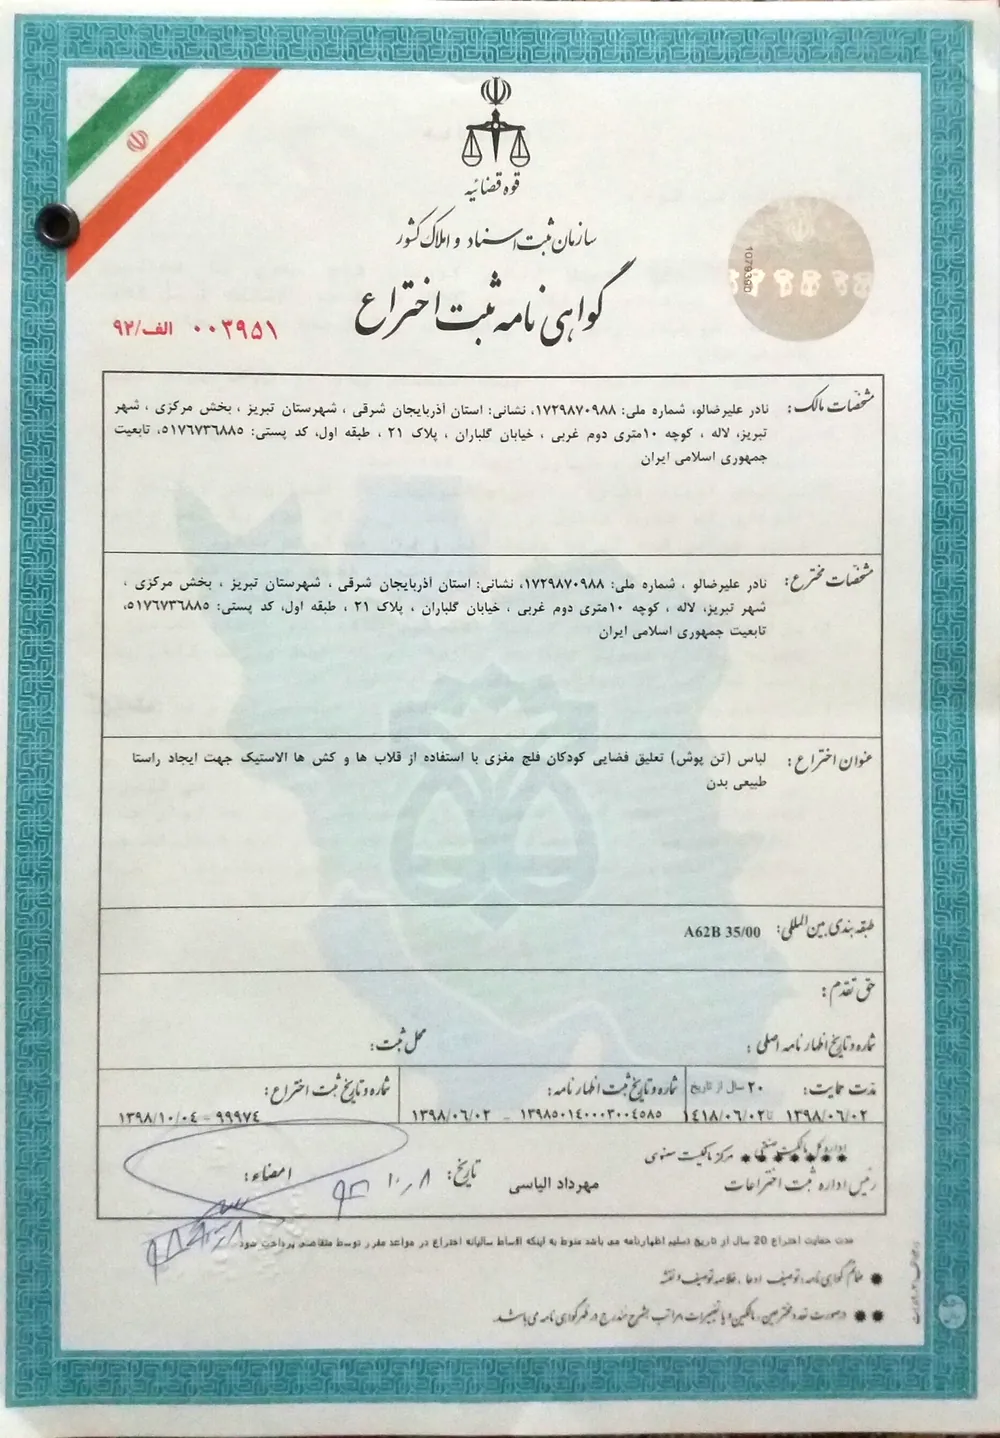 قوه قضائیه
سازمان ثبت اسناد و املاک کشور
گواهی نامه ثبت اختراع
۰۰۳۹۵۱ الف/۹۲
مشخصات مالک: نادر علیرضالو، شماره ملی: ۱۷۲۹۸۷۰۹۸۸، نشانی: استان آذربایجان شرقی ، شهرستان تبریز ، بخش مرکزی ، شهر
تبریز، لاله ، کوچه ۱۰متری دوم غربی ، خیابان گلباران ، پلاک ۲۱ ، طبقه اول، کد پستی: ۵۱۷۶۷۳۶۸۸۵، تابعیت
جمهوری اسلامی ایران
مشخصات مخترع: نادر علیرضالو ، شماره ملی: ۱۷۲۹۸۷۰۹۸۸، نشانی: استان آذربایجان شرقی ، شهرستان تبریز ، بخش مرکزی ،
شهر تبریز، لاله ، کوچه ۱۰متری دوم غربی ، خیابان گلباران ، پلاک ۲۱ ، طبقه اول، کد پستی: ۵۱۷۶۷۳۶۸۸۵،
تابعیت جمهوری اسلامی ایران
عنوان اختراع: لباس (تن پوش) تعلیق فضایی کودکان فلج مغزی با استفاده از قلاب ها و کش ها الاستیک جهت ایجاد راستا
طبیعی بدن
طبقه بندی بین المللی: A62B 35/00
حق تقدم:
شماره و تاریخ اظهارنامه اصلی: محل ثبت:
مدت حمایت: ۲۰ سال از تاریخ شماره و تاریخ ثبت اظهارنامه: شماره و تاریخ ثبت اختراع:
۱۳۹۸/۰۶/۰۲ تا ۱۴۱۸/۰۶/۰۲ ۱۳۹۸۵۰۱۴۰۰۰۳۰۰۴۵۸۵ - ۱۳۹۸/۰۶/۰۲ ۹۹۹۷۴ - ۱۳۹۸/۱۰/۰۴
اداره کل مالکیت صنعتی مرکز مالکیت معنوی
رئیس اداره ثبت اختراعات مهرداد الیاسی تاریخ: امضاء:
مدت حمایت اختراع 20 سال از تاریخ تسلیم اظهارنامه می باشد منوط به اینکه اقساط سالیانه اختراع در مواعد مقرر توسط متقاضی پرداخت شود
ضمائم گواهی نامه: توصیف ادعا، خلاصه توصیف و نقشه
درصورت تعدد مخترعین، مالکین و یا تغییرات مراتب بشرح مندرج در ظهر گواهی نامه می باشد.